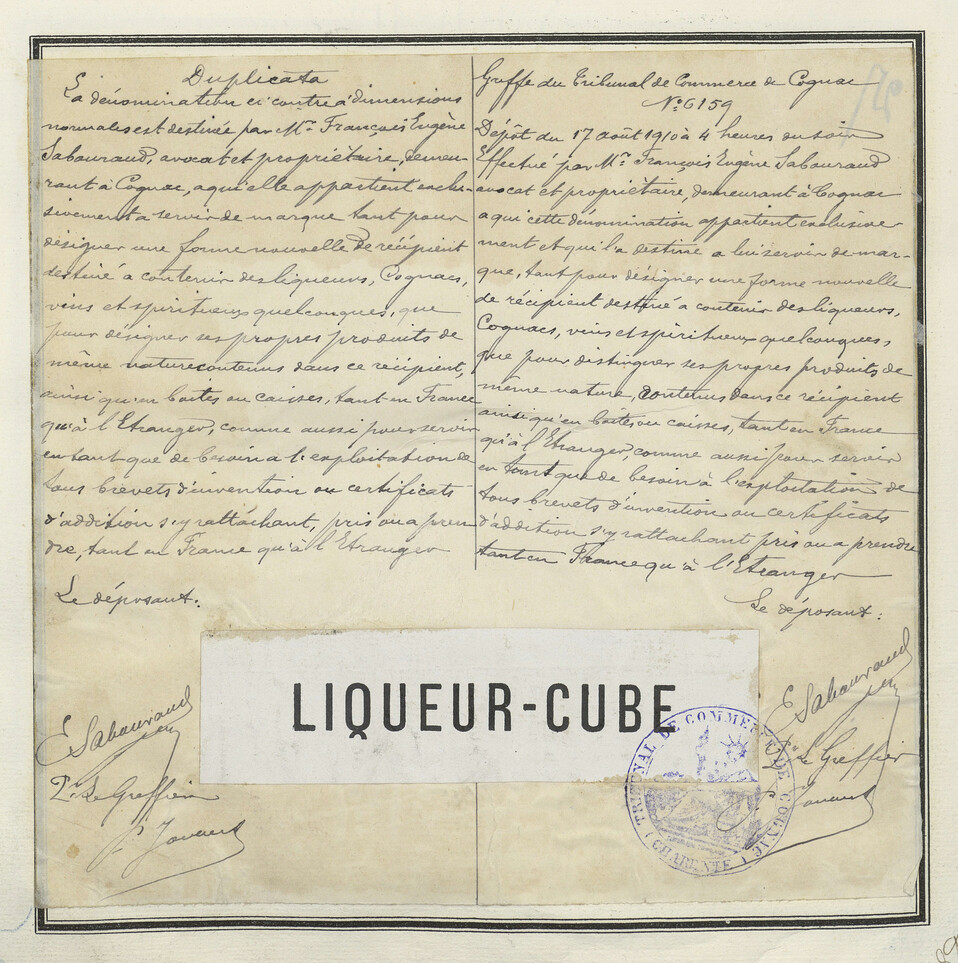 Duplicata
La dénomination ci contre à dimensions
normales est destinée par Mr. François Eugène
Sabouraud, avocat et propriétaire, demeu-
rant à Cognac, a qui elle appartient exclu-
sivement a servir de marque tant pour
désigner une forme nouvelle de récipient
destiné a contenir des liqueurs, Cognacs,
vins et spiritueux quelconques, que
pour désigner ses propres produits de
même nature contenus dans ce récipient,
ainsi qu'en boites ou caisses, tant en France
qu'à l'Etranger, comme aussi pour servir
en tant que de besoin a l'exploitation de
tous brevets d'invention ou certificats
d'addition s'y rattachant, pris ou a pren
dre, tant en France qu'à l'Etranger
Le déposant:
E Sabouraud
Pr. Le Greffier
Greffe du Tribunal de Commerce de Cognac
No. 6159
76
Dépôt du 17 Août 1910 à 4 heures du soir
Effectué par Mr. François Eugène Sabouraud
avocat et propriétaire, demeurant à Cognac
a qui cette dénomination appartient exclusive
ment et qu'il a destiné a lui servir de mar-
que, tant pour désigner une forme nouvelle
de récipient destiné a contenir des liqueurs,
Cognacs, vins et spiritueux quelconques,
que pour distinguer ses propres produits de
même nature, contenus dans ce récipient
ainsi qu'en boites ou caisses, tant en France
qu'à l'Etranger, comme aussi pour servir
en tant que de besoin à l'exploitation de
tous brevets d'invention ou certificats
d'addition s'y rattachant pris ou a prendre
tant en France qu'à l'Etranger
Le déposant:
E Sabouraud
Pr. Le Greffier
LIQUEUR-CUBE
TRIBUNAL DE COMMERCE DE COGNAC
(CHARENTE)